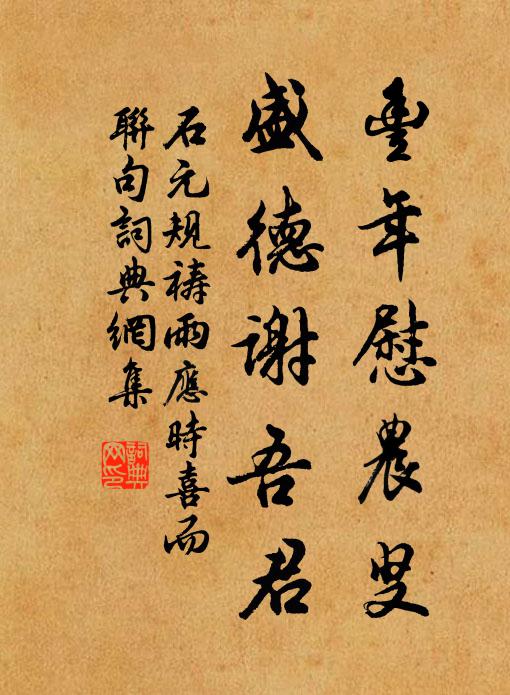 豊年慰農叟
盛德謝吾君
石元规禱雨應時喜而
聯句詞典網集
詞典網印